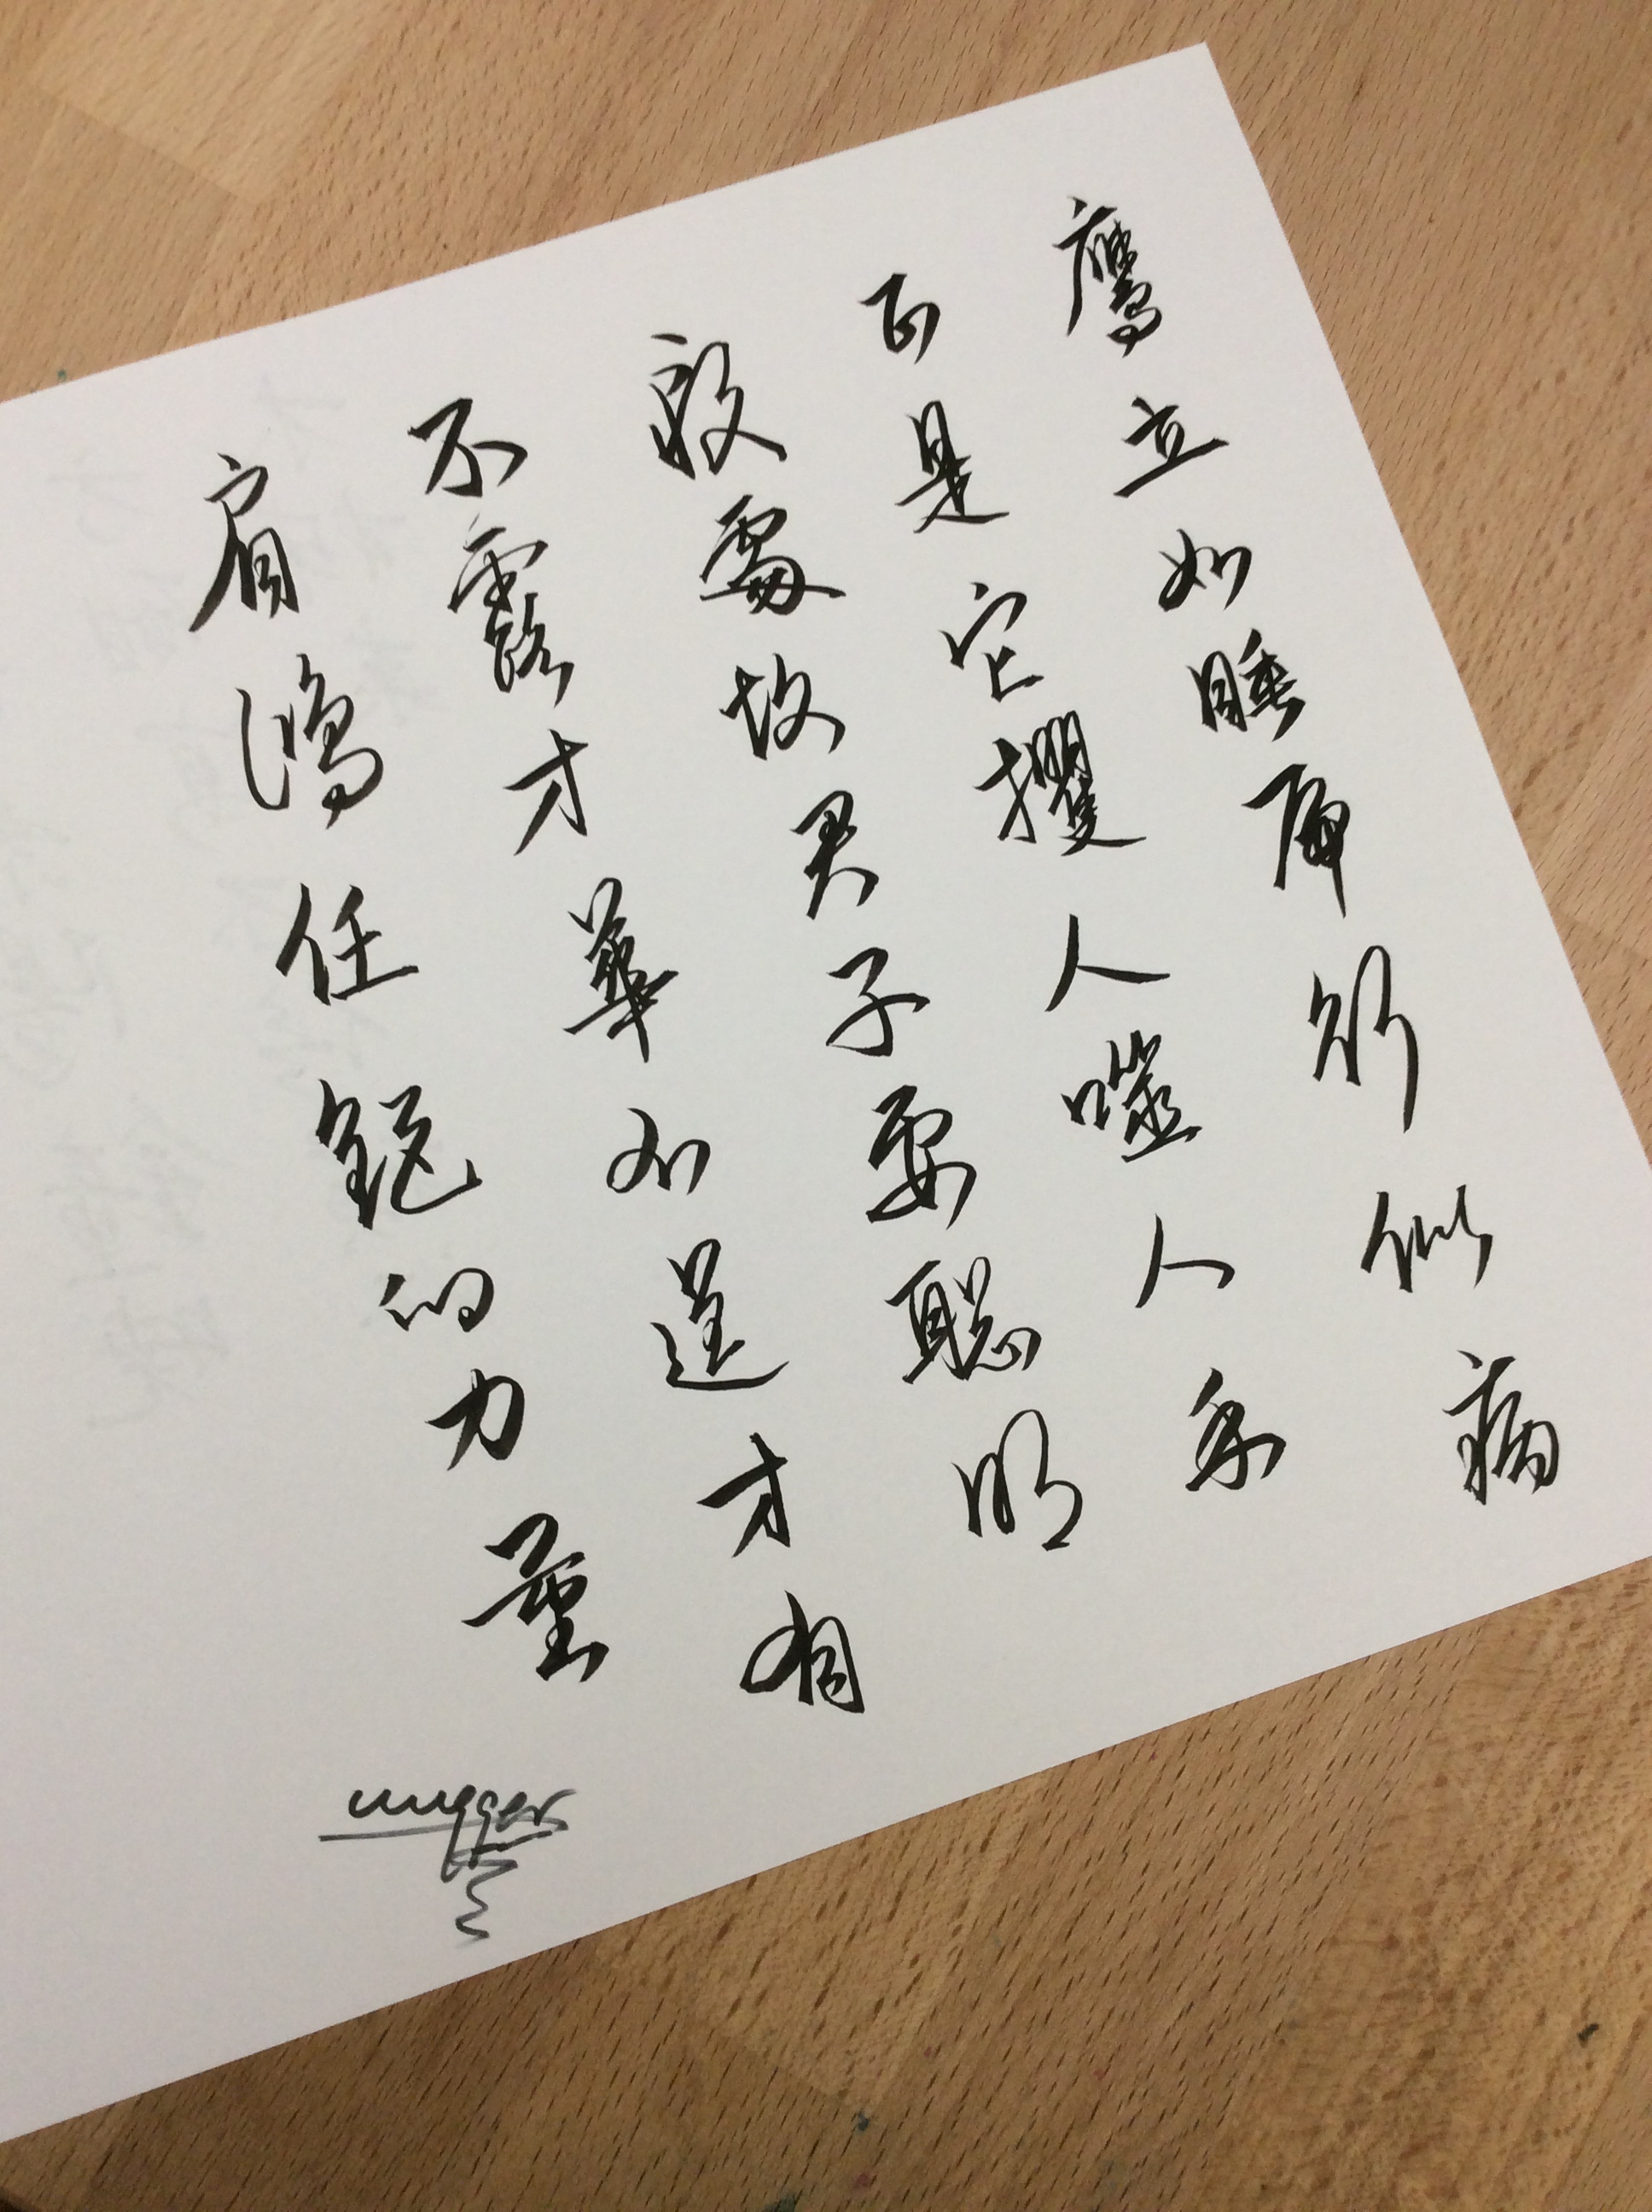 鷹立如睡虎行似病
正是它攫人噬人手
段處故君子要聰明
不露才華不逞才有
肩鴻任鉅的力量